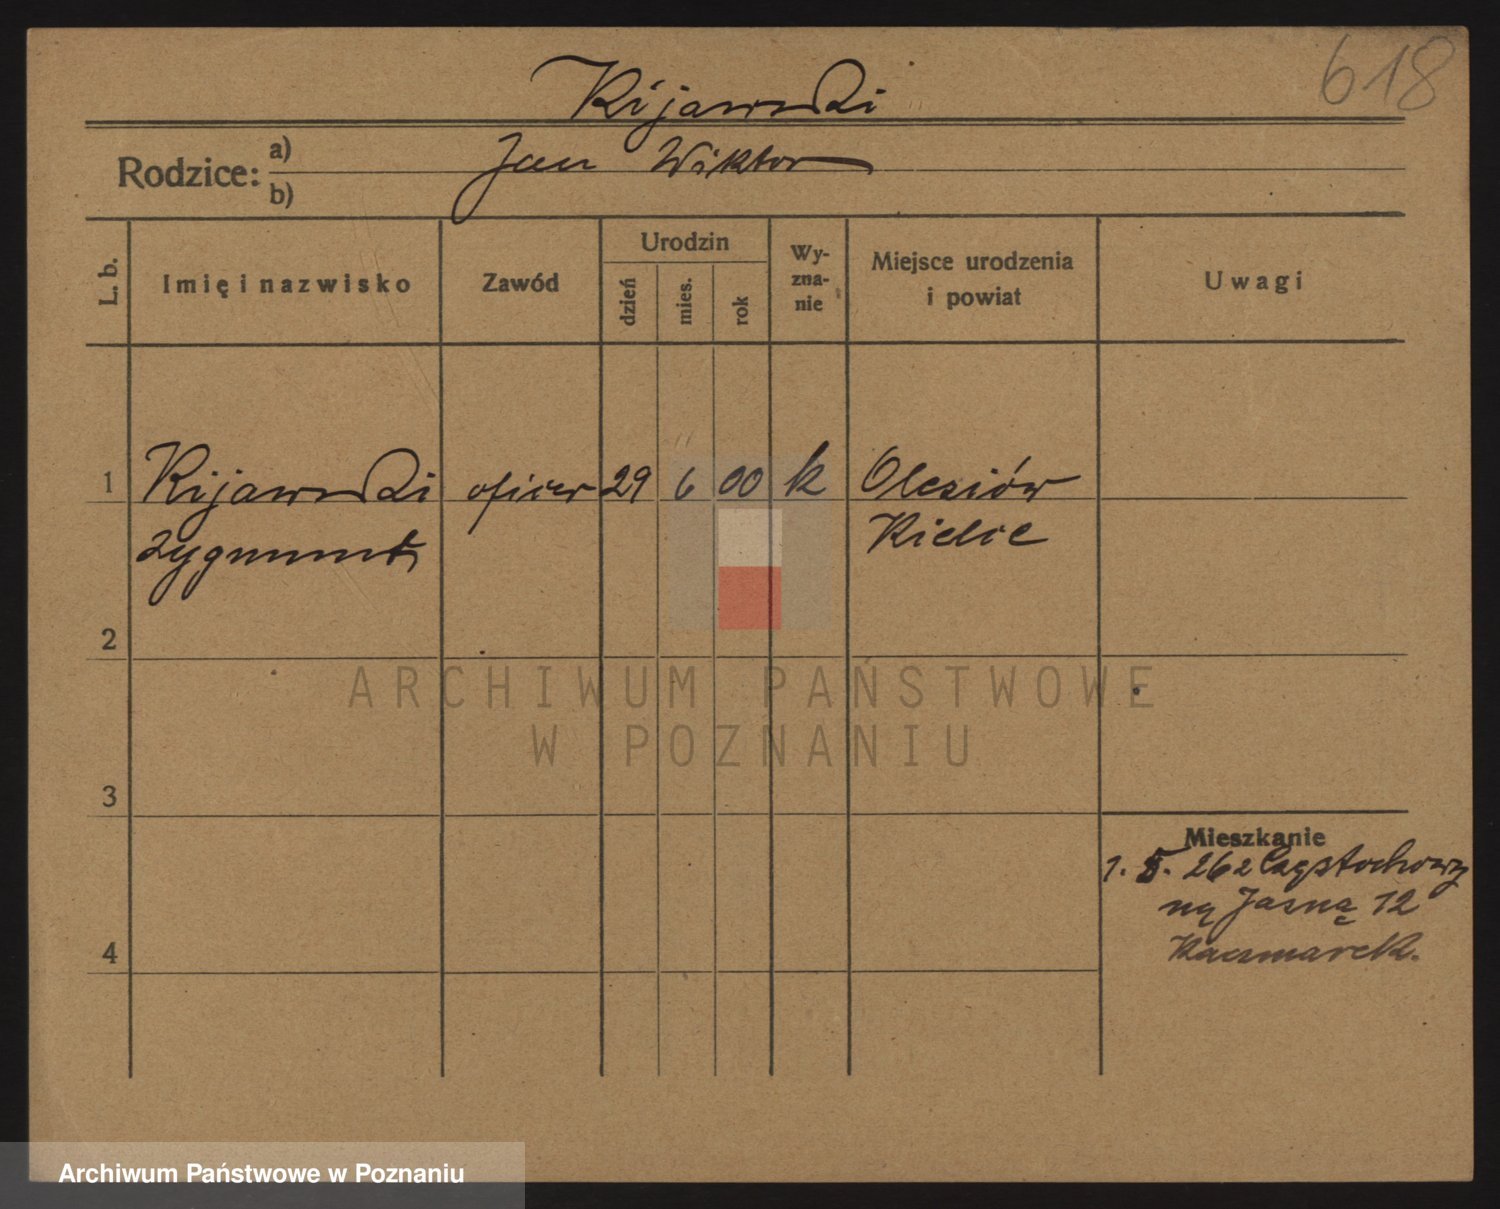 618
Kijawski
Rodzice: a) Jan Wiktor
b)
L. b.
Imię i nazwisko
Zawód
Urodzin
dzień
mies.
rok
Wy-
zna-
nie
Miejsce urodzenia
i powiat
Uwagi
1 Kijawski oficer 29 6 00 k Olesiów
Zygmunt Kielce
2
3
4
Mieszkanie
1. 5. 26 z Częstochowy
na Jasną 12
Kaczmarek.
ARCHIWUM PAŃSTWOWE
W POZNANIU
Archiwum Państwowe w Poznaniu